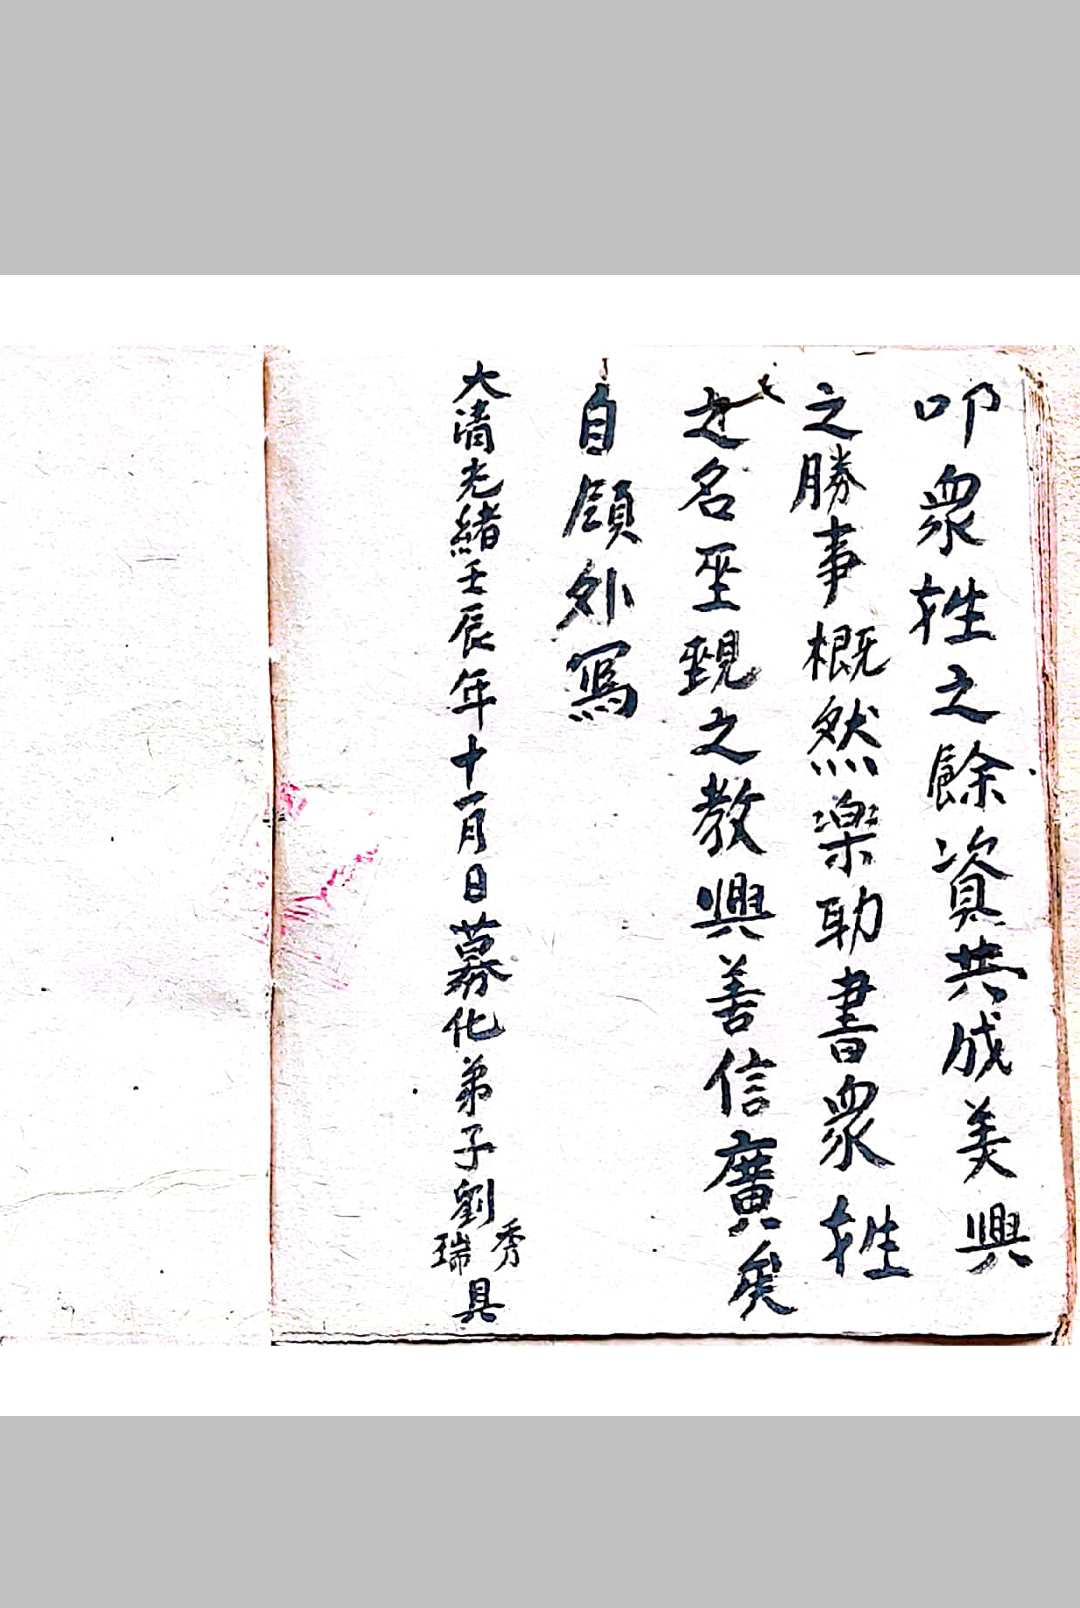 叩衆姓之餘資共成美興
之勝事概然樂助書衆姓
之名垩覲之教興善信廣矣
自領外寫
大清光緒壬辰年十一月日募化弟子劉秀瑞具